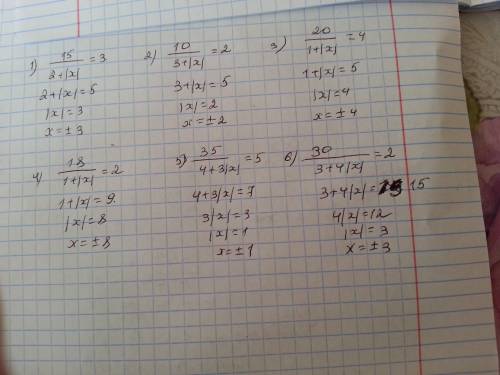 1) 15/(2+|x|) = 3
2+|x| = 5
|x| = 3
x = ± 3
2) 10/(3+|x|) = 2
3+|x| = 5
|x| = 2
x = ± 2
3) 20/(1+|x|) = 4
1+|x| = 5
|x| = 4
x = ± 4
4) 18/(1+|x|) = 2
1+|x| = 9
|x| = 8
x = ± 8
5) 35/(4+3|x|) = 5
4+3|x| = 7
3|x| = 3
|x| = 1
x = ± 1
6) 30/(3+4|x|) = 2
3+4|x| = 15
4|x| = 12
|x| = 3
x = ± 3